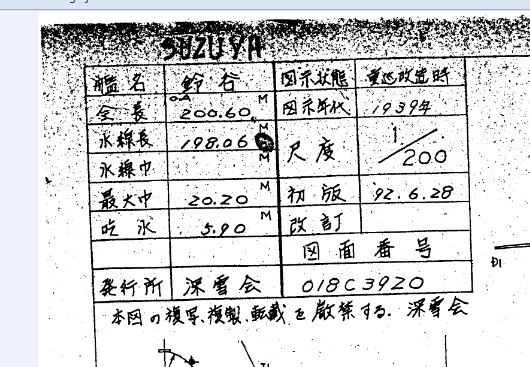 SUZUYA
艦名 鈴谷 図示状態 重防改造時
全長 OA 200.60 M 図示年代 1939年
水線長 198.06 M 尺度 1/200
水線巾 M
最大巾 20.20 M 初版 92.6.28
吃水 5.90 M 改訂
図面番号
発行所 深雪会 018C3920
本図の複写、複製、転載を厳禁する。深雪会
D1